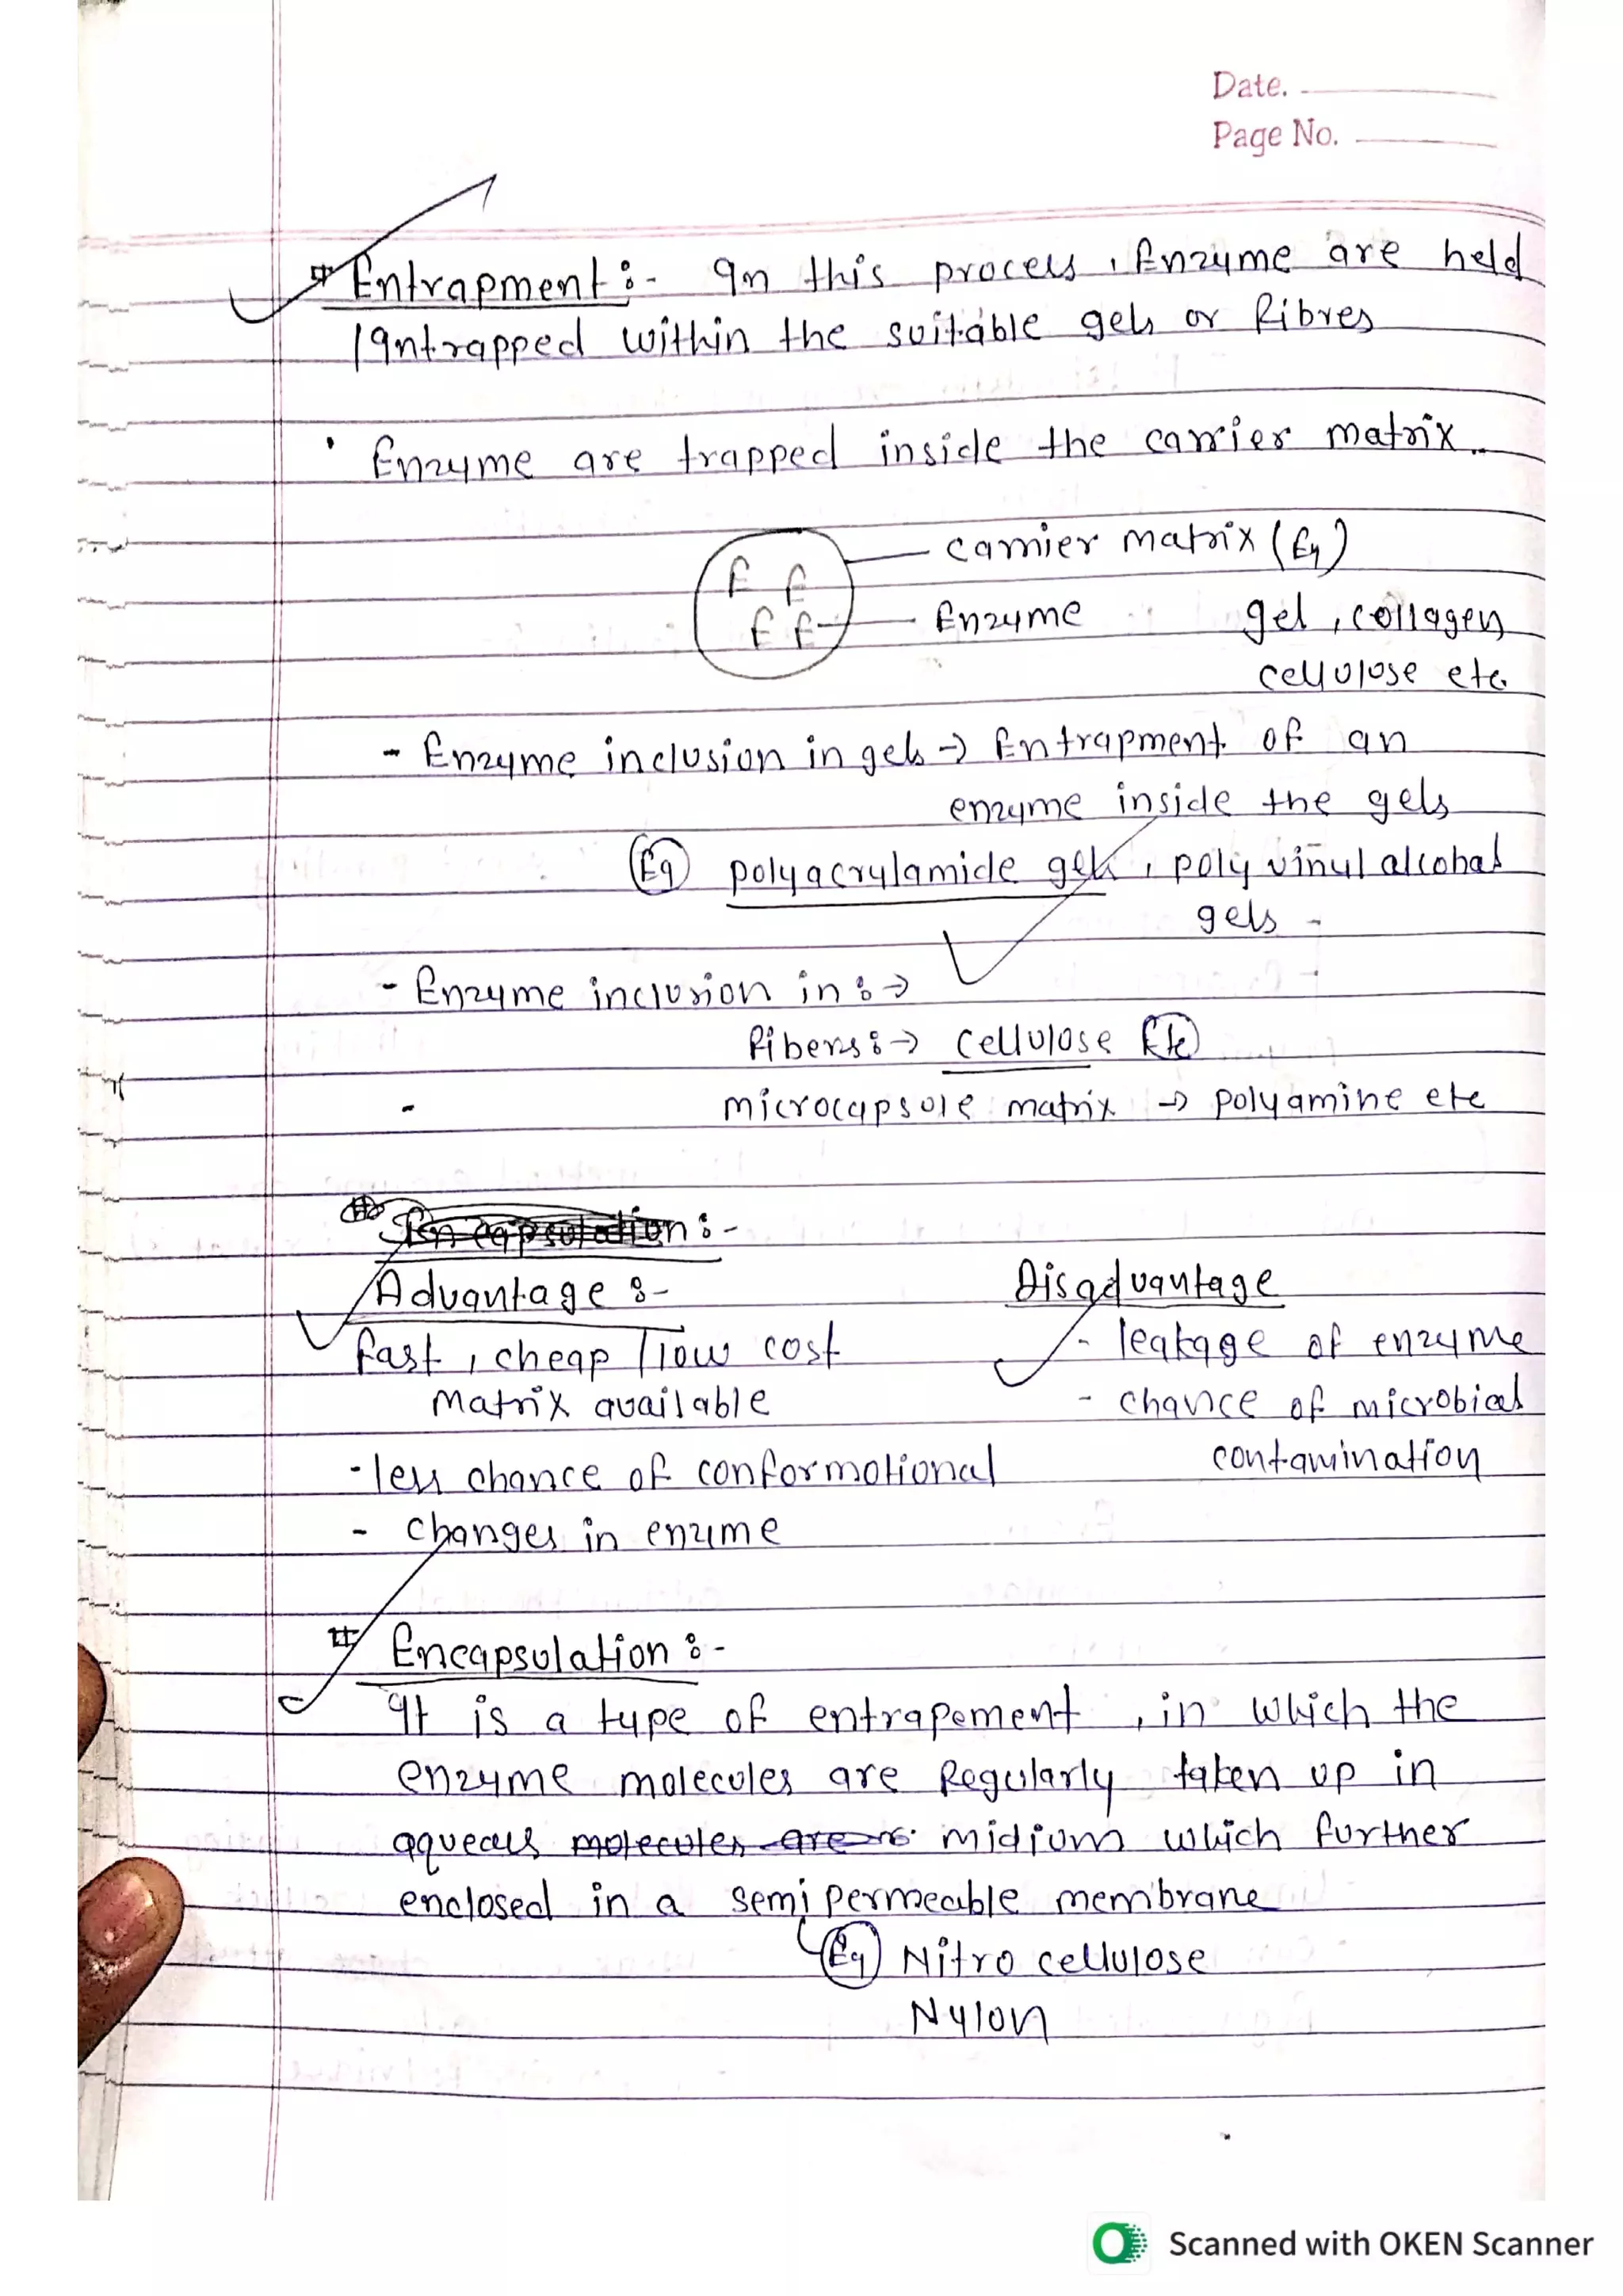 Date.
Page No.
# Entrapment :- In this process, Enzyme are held
/Intrapped within the suitable gels or Fibres
• Enzyme are trapped inside the carrier matrix.
carrier matrix (Eg)
E E
E E
Enzyme gel, collagen
cellulose etc.
- Enzyme inclusion in gels → Entrapment of an
enzyme inside the gels
(Eg) polyacrylamide gels, poly vinyl alcohal
gels -
- Enzyme inclusion in :→
Fibers :→ cellulose Etc
- microcapsole matrix → polyamine etc
# Encapsulation :-
Advantage :- Disadvantage
fast, cheap / low cost - leakage of enzyme
matrix available - chance of microbial
- less chance of conformotional contamination
- changes in enzime
# Encapsulation :-
It is a type of entrapement, in which the
enzyme molecules are Regularly taken up in
aqueous molecules are midium which further
enclosed in a semi permeable membrane
(Eg) Nitro cellulose
Nylon
Scanned with OKEN Scanner